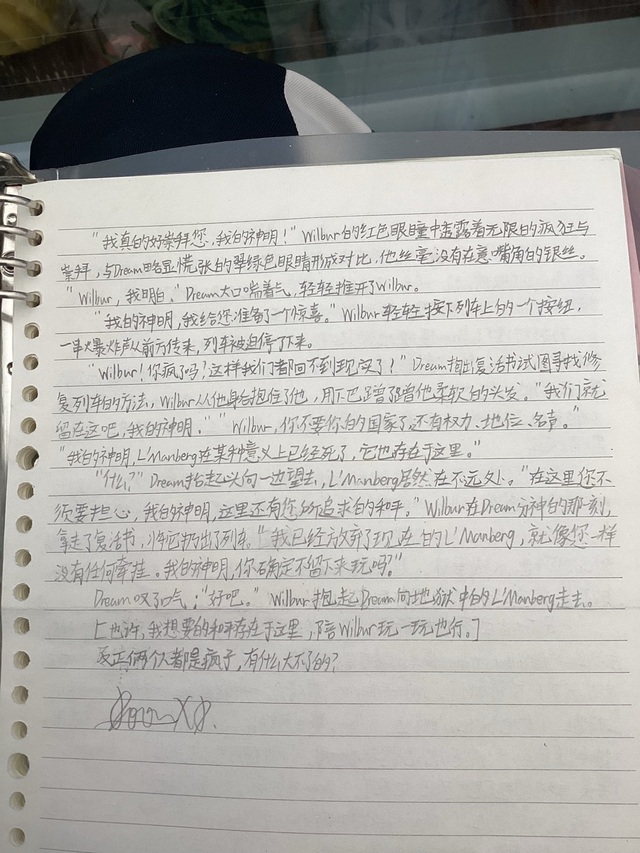 “我真的好崇拜您，我的神明！”Wilbur的红色眼瞳中透露着无限的疯狂与
崇拜，与Dream略显慌张的翠绿色眼睛形成对比，他丝毫没有在意嘴角的银丝。
“Wilbur，我明白。”Dream大口喘着气，轻轻推开了Wilbur。
“我的神明，我给您准备了一个惊喜。”Wilbur轻轻按下列车上的一个按钮，
一串爆炸声从前方传来，列车被迫停了下来。
“Wilbur！你疯了吗？这样我们都回不到现实了？”Dream掏出复活书试图寻找修
复列车的方法，Wilbur从他身后抱住了他，用下巴蹭蹭他柔软的头发。“我们就
留在这吧，我的神明。”“Wilbur，你不要你的国家了，还有权力、地位、名声。”
“我的神明，L'Manberg在某种意义上已经死了，它也存在于这里。”
“什么？”Dream抬起头向一边望去，L'Manberg居然在不远处。“在这里你不
须要担心，我的神明，这里还有您所追求的和平。”Wilbur在Dream分神的那一刻，
拿走了复活书，将它扔出了列车。“我已经放弃了现在的L'Manberg，就像您一样
没有任何牵挂。我的神明，你确定不留下来玩吗？”
Dream叹了口气：“好吧。”Wilbur抱起Dream向地狱中的L'Manberg走去。
[也许，我想要的和平存在于这里，陪Wilbur玩一玩也行。]
反正俩个人都是疯子，有什么大不了的？